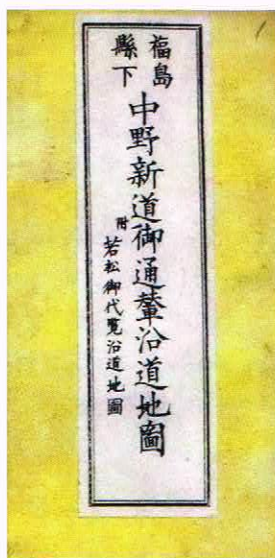 福島
縣下
中野新道御通輦沿道地圖
附
若松御代覧沿道地圖